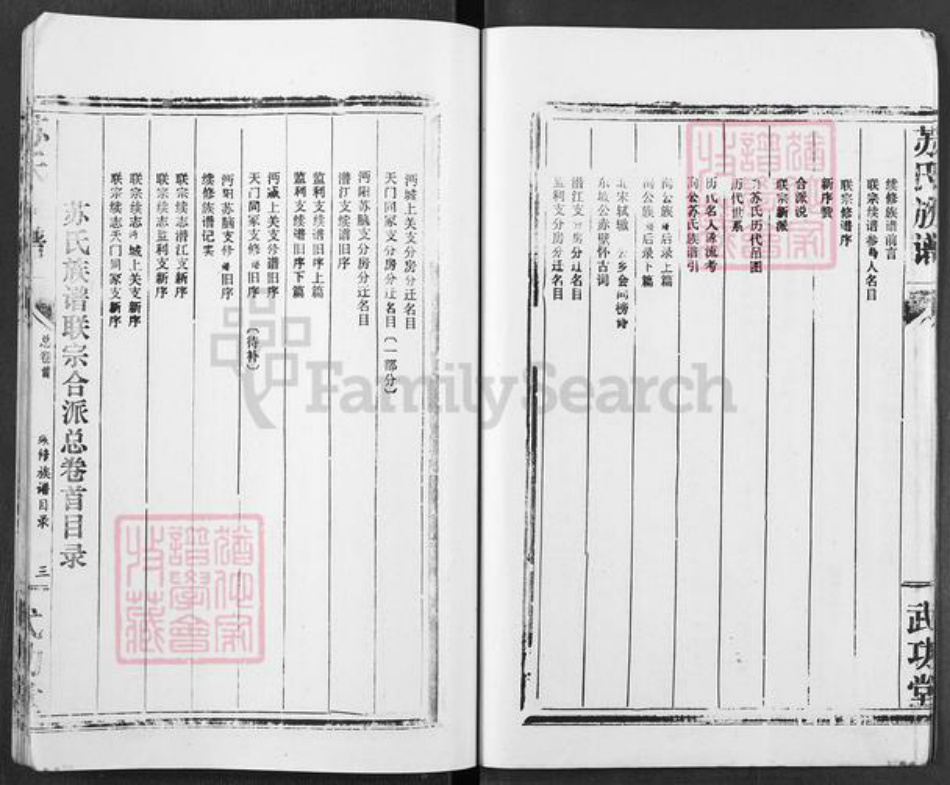 苏氏族谱
武功堂
续修族谱前言
联宗续谱参 人名目
联宗修谱序
新序赞
合派说
联宗新派
苏氏历代吊图
历代世系
历氏名人源流考
公苏氏族谱引
公族 后录上篇
公族 后录下篇
北宋轼辙 乡会同榜诗
东坡公赤壁怀古词
潜江支分房分迁名目
监利支分房分迁名目
沔城上关支分房分迁名目
天门同冢支分房分迁名目(一部分)
沔阳苏脑支分房分迁名目
潜江支续谱旧序
监利支续谱旧序上篇
监利支续谱旧序下篇
沔城上关支修谱旧序
天门同冢支修谱旧序 (待补)
沔阳苏脑支修谱旧序
续修族谱记实
联宗续志潜江支新序
联宗续志监利支新序
联宗续志沔城上关支新序
联宗续志天门同冢支新序
苏氏族谱联宗合派总卷首目录
总卷首
族谱目录
三
FamilySearch
谱学会
收藏